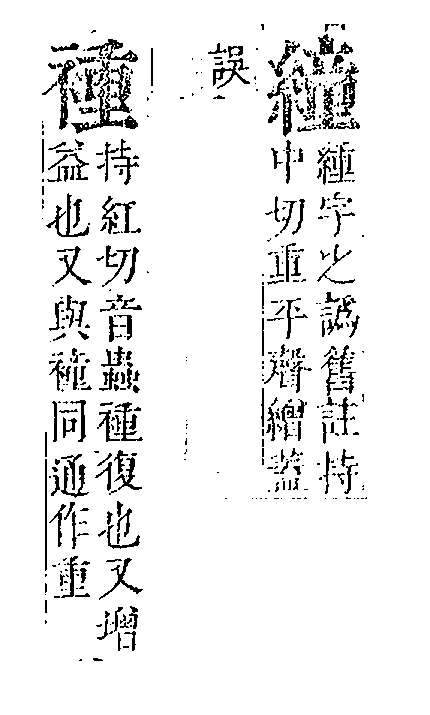 緟字之譌舊註持
中切重平聲繒益
誤
緟
持紅切音蟲緟復也又增
益也又與褈同通作重